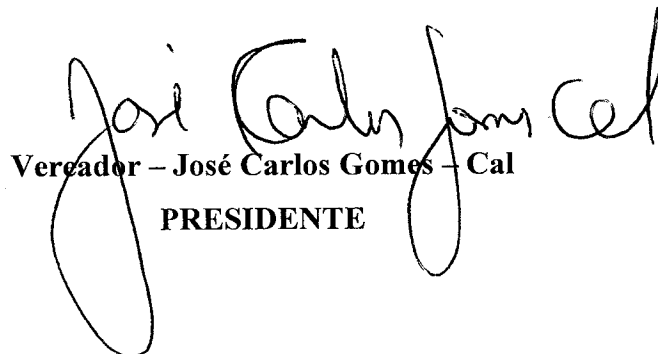 José Carlos Gomes Cal
Vereador – José Carlos Gomes – Cal
PRESIDENTE